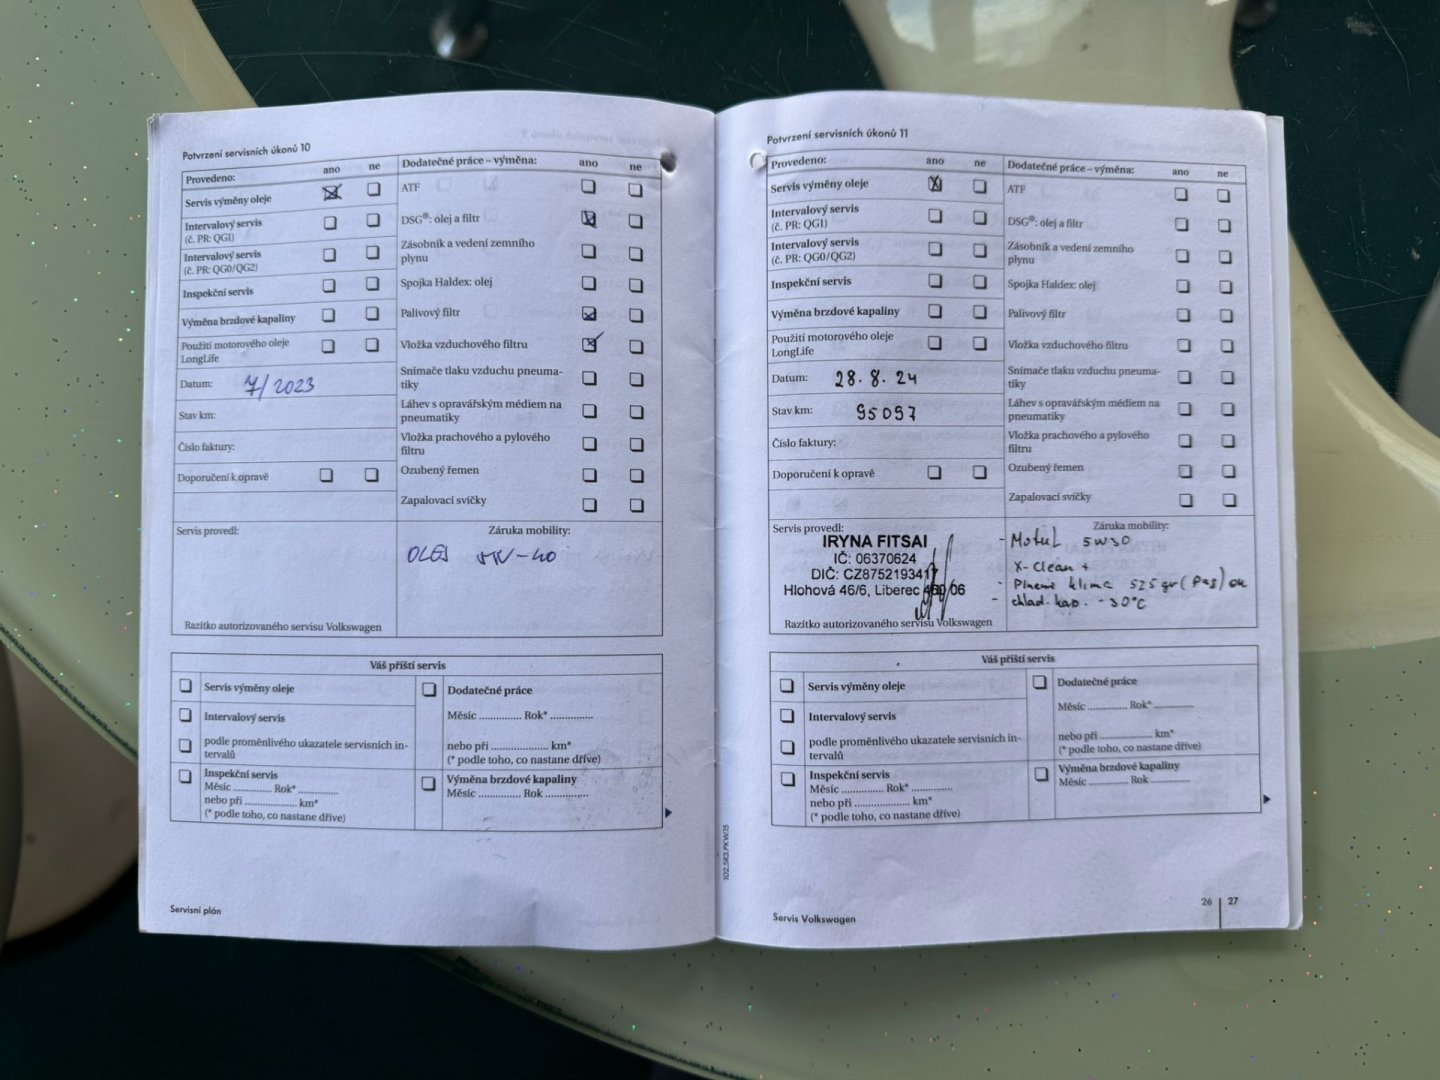 Potvrzení servisních úkonů 10
Provedeno: ano ne
Servis výměny oleje
Intervalový servis
(č. PR: QG1)
Intervalový servis
(č. PR: QG0/QG2)
Inspekční servis
Výměna brzdové kapaliny
Použití motorového oleje
LongLife
Datum: 7/2023
Stav km:
Číslo faktury:
Doporučení k opravě
Dodatečné práce – výměna: ano ne
ATF
DSG®: olej a filtr
Zásobník a vedení zemního
plynu
Spojka Haldex: olej
Palivový filtr
Vložka vzduchového filtru
Snímače tlaku vzduchu pneuma-
tiky
Láhev s opravářským médiem na
pneumatiky
Vložka prachového a pylového
filtru
Ozubený řemen
Zapalovací svíčky
Servis provedl:
Razítko autorizovaného servisu Volkswagen
Záruka mobility:
OLEJ 5W-40
Váš příští servis
Servis výměny oleje
Intervalový servis
podle proměnlivého ukazatele servisních in-
tervalů
Inspekční servis
Měsíc .............. Rok* ..............
nebo při ................... km*
(* podle toho, co nastane dříve)
Dodatečné práce
Měsíc .............. Rok* ..............
nebo při ................... km*
(* podle toho, co nastane dříve)
Výměna brzdové kapaliny
Měsíc .............. Rok ..............
Servisní plán
Potvrzení servisních úkonů 11
Provedeno: ano ne
Servis výměny oleje
Intervalový servis
(č. PR: QG1)
Intervalový servis
(č. PR: QG0/QG2)
Inspekční servis
Výměna brzdové kapaliny
Použití motorového oleje
LongLife
Datum: 28.8.24
Stav km: 95097
Číslo faktury:
Doporučení k opravě
Dodatečné práce – výměna: ano ne
ATF
DSG®: olej a filtr
Zásobník a vedení zemního
plynu
Spojka Haldex: olej
Palivový filtr
Vložka vzduchového filtru
Snímače tlaku vzduchu pneuma-
tiky
Láhev s opravářským médiem na
pneumatiky
Vložka prachového a pylového
filtru
Ozubený řemen
Zapalovací svíčky
Servis provedl:
IRYNA FITSAI
IČ: 06370624
DIČ: CZ8752193417
Hlohová 46/6, Liberec 460 06
Razítko autorizovaného servisu Volkswagen
Záruka mobility:
- Motul 5W30
X-Clean +
- Plnění klima 525gr (Pag) ok
- chlad. kap. -30°C
Váš příští servis
Servis výměny oleje
Intervalový servis
podle proměnlivého ukazatele servisních in-
tervalů
Inspekční servis
Měsíc .............. Rok* ..............
nebo při ................... km*
(* podle toho, co nastane dříve)
Dodatečné práce
Měsíc .............. Rok* ..............
nebo při ................... km*
(* podle toho, co nastane dříve)
Výměna brzdové kapaliny
Měsíc .............. Rok ..............
102.5R3.PKW.15
Servis Volkswagen
26 27